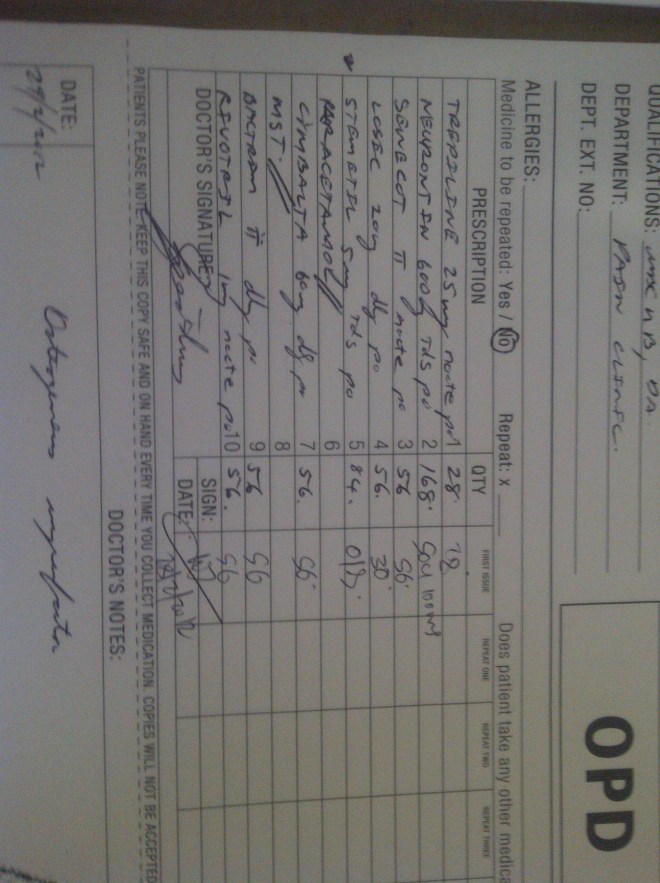 QUALIFICATIONS: B,
OPD
DEPARTMENT: PAIN CLINIC.
DEPT. EXT. NO:
ALLERGIES:
Medicine to be repeated: Yes / No Repeat: x Does patient take any other medica
PRESCRIPTION QTY FIRST ISSUE REPEAT ONE REPEAT TWO REPEAT THREE
TREPILINE 25mg nocte po 1 28.
NEURONTIN 600g TDS po 2 168.
SENECOT II nocte po 3 56 56.
LOSEC 20mg dly po 4 56. 30.
STEMETIL 5mg tds po 5 84. 0/S.
PARACETAMOL 6
CYMBALTA 60mg dly po 7 56. 56.
MST. 8
BACTRAM II dly po 9 56 56
RIVOTRIL 1mg nocte po 10 56. 56
DOCTOR'S SIGNATURE: SIGN:
DATE:
PATIENTS PLEASE NOTE: KEEP THIS COPY SAFE AND ON HAND EVERY TIME YOU COLLECT MEDICATION. COPIES WILL NOT BE ACCEPTED
DOCTOR'S NOTES:
DATE:
29/2/2012 Osteogenesis imperfecta